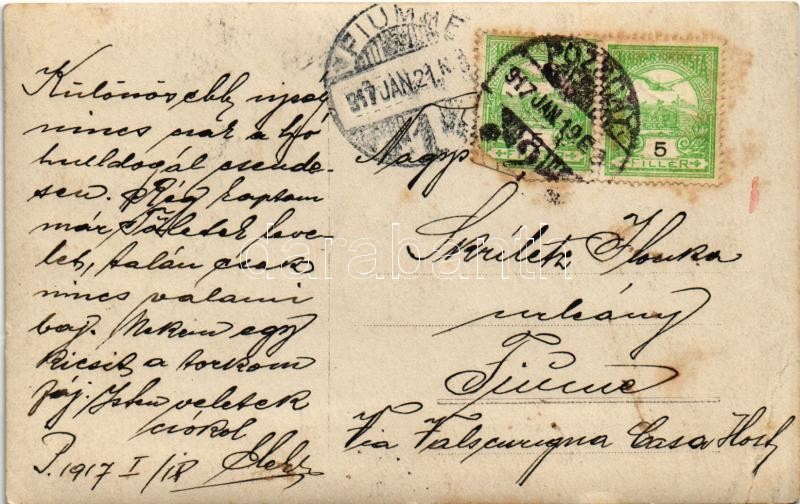 Különösebb ujság
nincs csak a hó
hulldogál csende-
sen. Rég kaptam
már Tőletek leve-
let, talán csak
nincs valami
baj. Nekem egy
kicsit a torkom
fáj. Isten veletek
csókol
P. 1917 I/18
FIUME
917 JAN. 21.
POZSONY
917 JAN. 19.
5
FILLER
Nagys.
Skriletz Ilonka
urleány
Fiume
Via Valscurigna Casa Host
darabanth